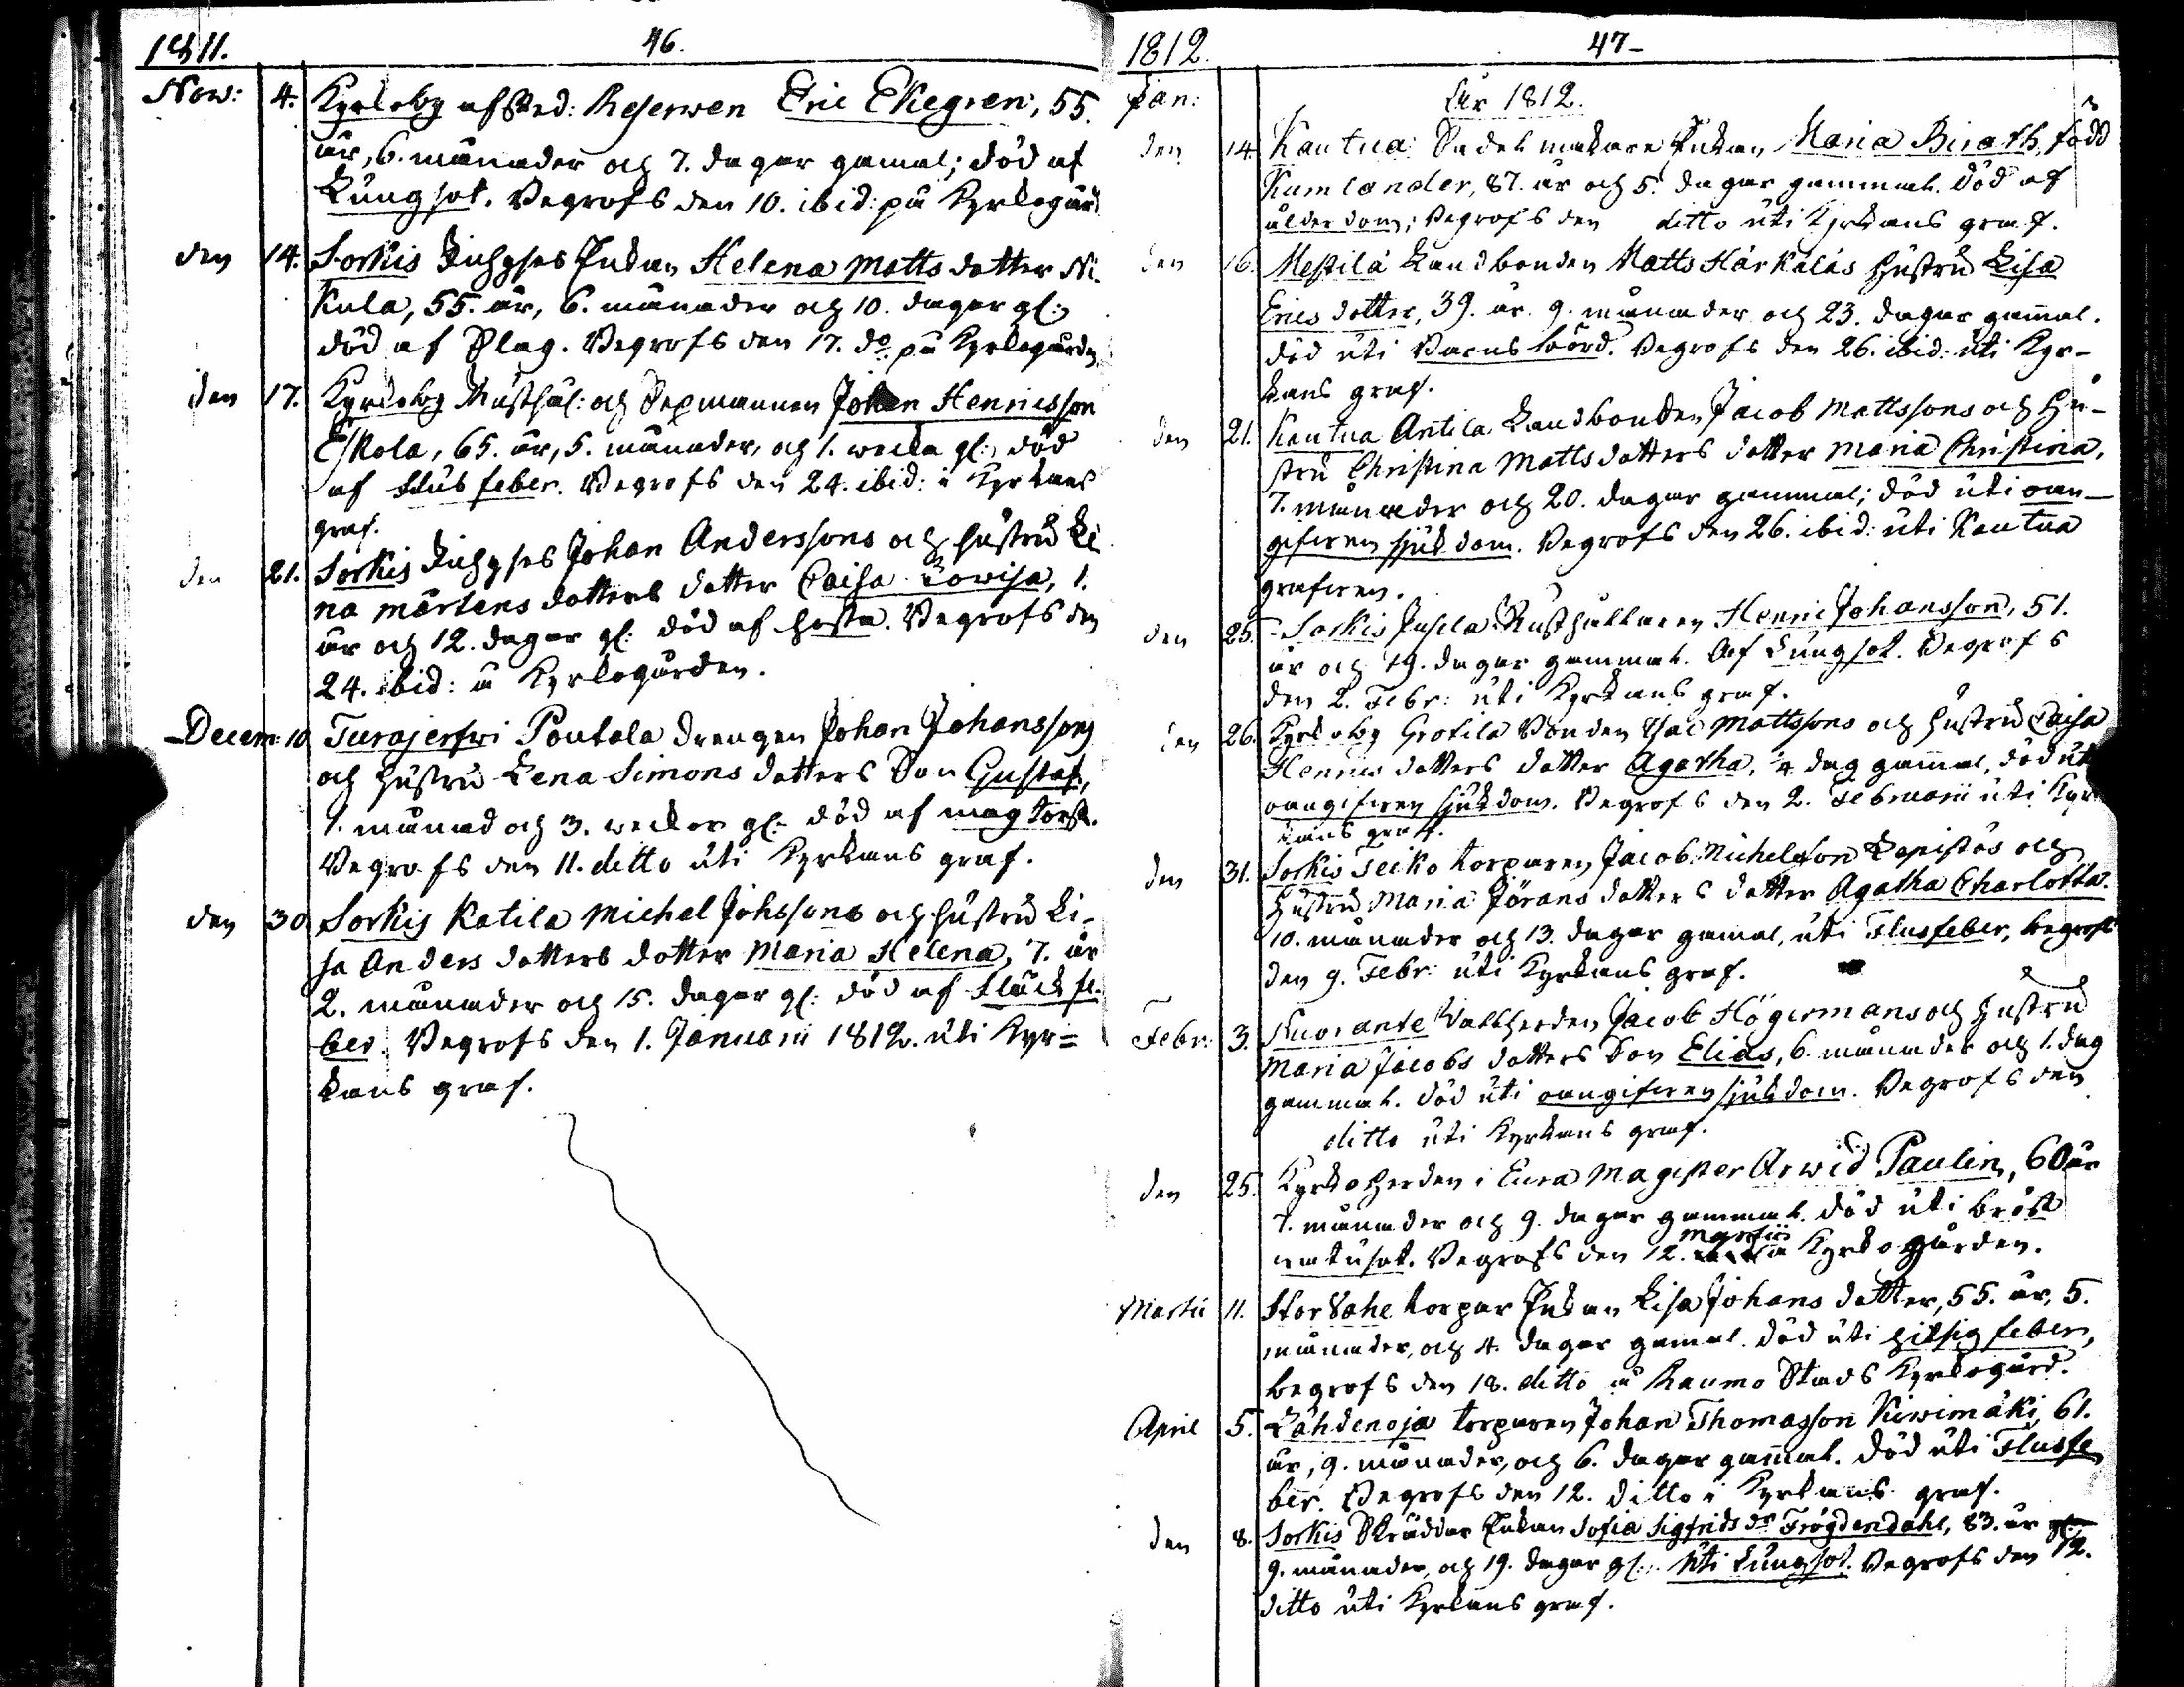 1811.
46.
Now: 4. Kyrkoby afsked: Reserwen Eric Ekegren, 55.
år, 6. månader och 7. dagar gamal; död af
Lungsot. Begrofs den 10. ibid: på Kyrkogård
den 14. Sorkis Inhyses Enkan Helena Matts dotter Ni
kula, 55. år, 6. månader och 10. dagar gl:
död af Slag. Begrofs den 17. do på Kyrkogården
den 17. Kyrkoby Rusthål: och Sexmannen Johan Henricsson
Eskola, 65. år, 5. månader, och 1. wecka gl: död
af Flusfeber. Begrofs den 24. ibid: i Kyrkans
graf.
den 21. Sorkis Inhyses Johan Anderssons och hustru Le
na Mårtens dotters dotter Caisa Lowisa, 1.
år och 12. dagar gl: död af hosta. Begrofs den
24. ibid: å Kyrkogården.
Decem: 10 Turajerfwi Poutala Drengen Johan Johanssons
och hustru Lena Simons dotters Son Gustaf,
1. månad och 3. weckor gl: död af mag torsk.
Begrofs den 11. ditto uti Kyrkans graf.
den 30 Sorkis Katila Michel Johssons och hustru Li-
sa Anders dotters dotter Maria Helena, 7. år
2. månader och 15. dagar gl: död af Fläckfe
ber. Begrofs den 1. Januarii 1812. uti Kyr=
kans graf.
1812.
47-
År 1812.
Jan:
den 14. Kautua Sadelmakare Enkan Maria Birath, född
Kumlander, 87. år och 5. dagar gammal. död af
ålderdom; Begrofs den ditto uti Kyrkans graf.
den 16. Mestilä Landbonden Matts Härkäläs hustru Lisa
Erics dotter, 39. år. 9. månader och 23. dagar gamal.
död uti Barnsbörd. Begrofs den 26. ibid: uti Kyr-
kans graf.
den 21. Kautua Antila Landbonden Jacob Mattssons och hu-
stru Christina Mattsdotters dotter Maria Christina,
7. månader och 20. dagar gammal; död uti oan-
gifwen sjukdom. Begrofs den 26. ibid: uti Kautua
grafwen.
den 25. Sorkis Rusthållaren Henric Johansson, 51.
år och 19. dagar gammal. Af Lungsot. Begrofs
den 2. Febr: uti Kyrkans graf.
den 26. Kyrkoby Grotila Bonden Isac Mattssons och hustru Caisa
Henrics dotters dotter Agatha, 4 dag gammal, död ut
oangifwen sjukdom. Begrofs den 2. Februarii uti Kyr
kans graf.
den 31. Sorkis Seiko torparen Jacob Michelsson Lepistös och
hustru Maria Jörans dotters dotter Agatha Charlotta.
10. månader och 13. dagar gamal, uti Flusfeber, begrofs
den 9. Febr: uti Kyrkans graf.
Febr: 3. Kuorante Wallherden Jacob Högermans och hustru
Maria Jacobs dotters Son Elias, 6. månader och 1. dag
gammal. död uti oangifwen sjukdom. Begrofs den
ditto uti Kyrkans graf.
den 25. Kyrkoherden i Eura Magister Arwid Paulin, 60 år
7. månader och 9. dagar gammal. död uti bröst
watusot. Begrofs den 12. Martii å Kyrkogården.
Martii 11. Storsohe torpar Enkan Lisa Johans dotter, 55. år, 5.
månader, och 4. dagar gamal. död uti hitsig feber,
begrofs den 18. ditto å Raumo Stads Kyrkogård.
April 5. Lähdenoja torparen Johan Thomasson Kiwimäki, 61.
år, 9. månader, och 6. dagar gamal. död uti Flusfe
ber. Begrofs den 12. ditto i Kyrkans graf.
den 8. Sorkis Skräddar Enkan Sofia Sigfrids dr Frögdendahl, 83. år
9. månader, och 19. dagar gl: Uti Lungsot. Begrofs den 12.
ditto uti Kyrkans graf.